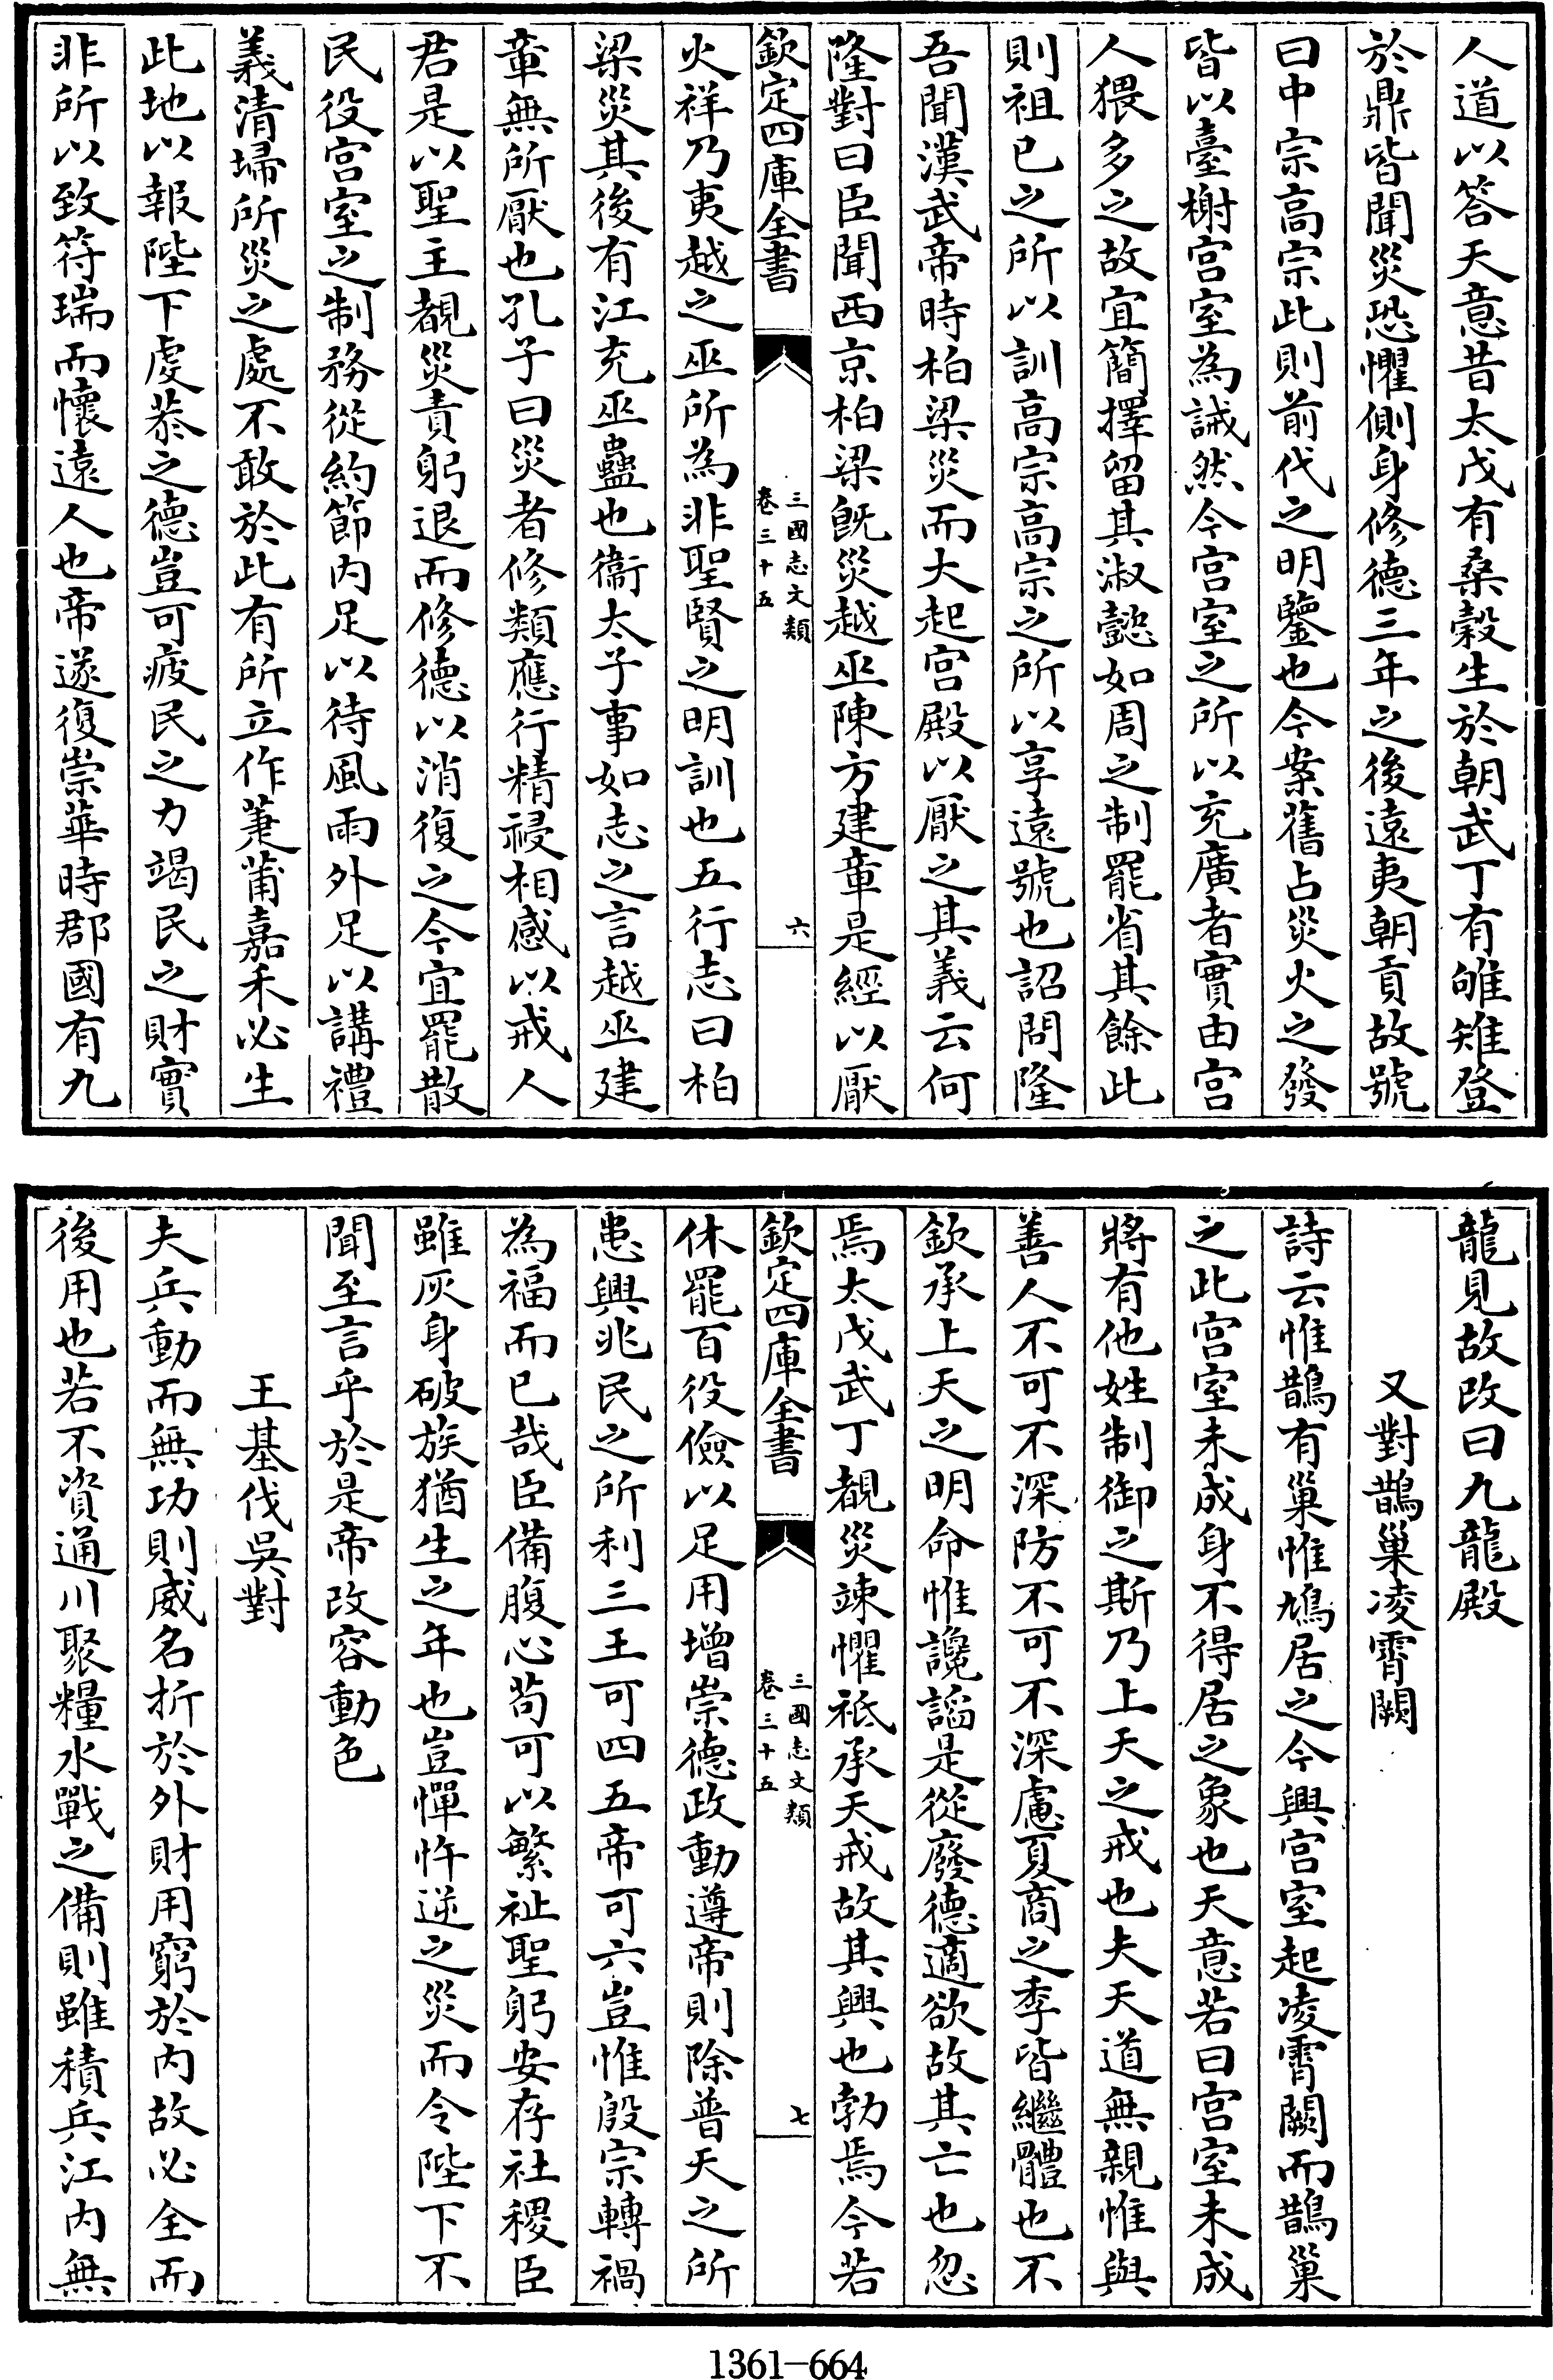 人道以答天意昔太戊有桑榖生於朝武丁有雊雉登
於鼎皆聞災恐懼側身修德三年之後遠夷朝貢故號
曰中宗高宗此則前代之明鑒也今案舊占災火之發
皆以臺榭宫室為誡然今宫室之所以充廣者實由宫
人猥多之故宜簡擇留其淑懿如周之制罷省其餘此
則祖已之所以訓高宗高宗之所以享遠號也詔問隆
吾聞漢武帝時柏梁災而大起宫殿以厭之其義云何
隆對曰臣聞西京柏梁既災越巫陳方建章是經以厭
欽定四庫全書
三國志文類
卷三十五
六
火祥乃夷越之巫所為非聖賢之明訓也五行志曰柏
梁災其後有江充巫蠱也衞太子事如志之言越巫建
章無所厭也孔子曰災者修類應行精祲相感以戒人
君是以聖主覩災責躬退而修德以消復之今宜罷散
民役宫室之制務從約節内足以待風雨外足以講禮
義清埽所災之處不敢於此有所立作萐莆嘉禾必生
此地以報陛下虔恭之德豈可疲民之力竭民之財實
非所以致符瑞而懷遠人也帝遂復崇華時郡國有九
龍見故改曰九龍殿
又對鵲巢凌霄闕
詩云惟鵲有巢惟鳩居之今興宫室起凌霄闕而鵲巢
之此宫室未成身不得居之象也天意若曰宫室未成
將有他姓制御之斯乃上天之戒也夫天道無親惟與
善人不可不深防不可不深慮夏商之季皆繼體也不
欽承上天之明命惟讒謟是從廢德適欲故其亡也忽
焉太戊武丁覩災竦懼祗承天戒故其興也勃焉今若
欽定四庫全書
三國志文類
卷三十五
七
休罷百役儉以足用增崇德政動遵帝則除普天之所
患興兆民之所利三王可四五帝可六豈惟殷宗轉禍
為福而已哉臣備腹心苟可以繁祉聖躬安存社稷臣
雖灰身破族猶生之年也豈憚忤逆之災而令陛下不
聞至言乎於是帝改容動色
王基伐吳對
夫兵動而無功則威名折於外財用窮於内故必全而
後用也若不資通川聚糧水戰之備則雖積兵江内無
1361-664